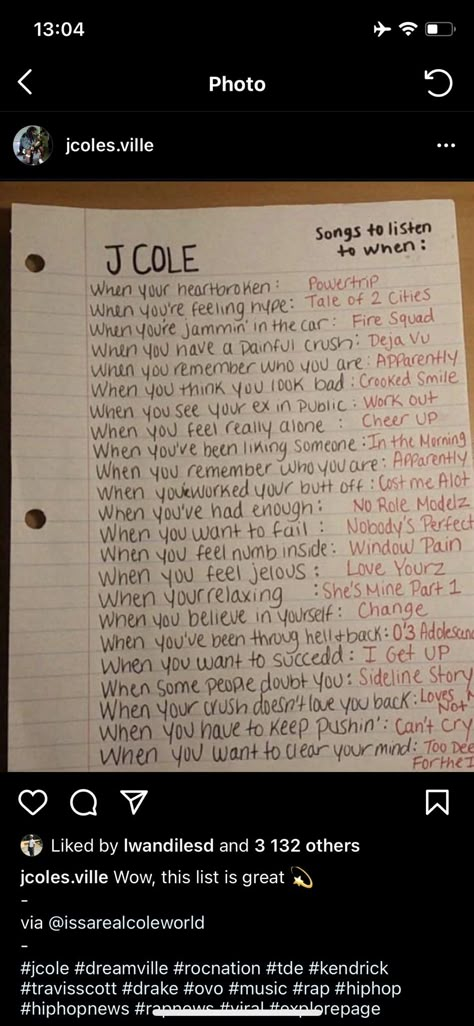 13:04
Photo
jcoles.ville
Songs to listen
to when:
J COLE
When your heartbroken: Powertrip
When you're feeling hype: Tale of 2 Cities
When you're jammin' in the car: Fire Squad
When you have a painful crush: Deja Vu
When you remember who you are: Apparently
When you think you look bad: Crooked Smile
When you see your ex in public: Work out
When you feel really alone : Cheer up
When you've been liking someone: In the Morning
When you remember who you are: Apparently
When you've worked your butt off: Cost me Alot
When you've had enough: No Role Modelz
When you want to fail : Nobody's Perfect
When you feel numb inside: Window Pain
When you feel jelous : Love Yourz
When your relaxing : She's Mine Part 1
When you believe in yourself: Change
When you've been throug hell & back: 0'3 Adolescen
When you want to succedd: I Get UP
When some people doubt you: Sideline Story
When your crush doesn't love you back: Loves
Not
When you have to keep pushin': Can't Cry
When you want to clear your mind: Too Dee
For the I
Liked by lwandilesd and 3 132 others
jcoles.ville Wow, this list is great
-
via @issarealcoleworld
-
#jcole #dreamville #rocnation #tde #kendrick
#travisscott #drake #ovo #music #rap #hiphop
#hiphopnews #rapnews #viral #explorepage